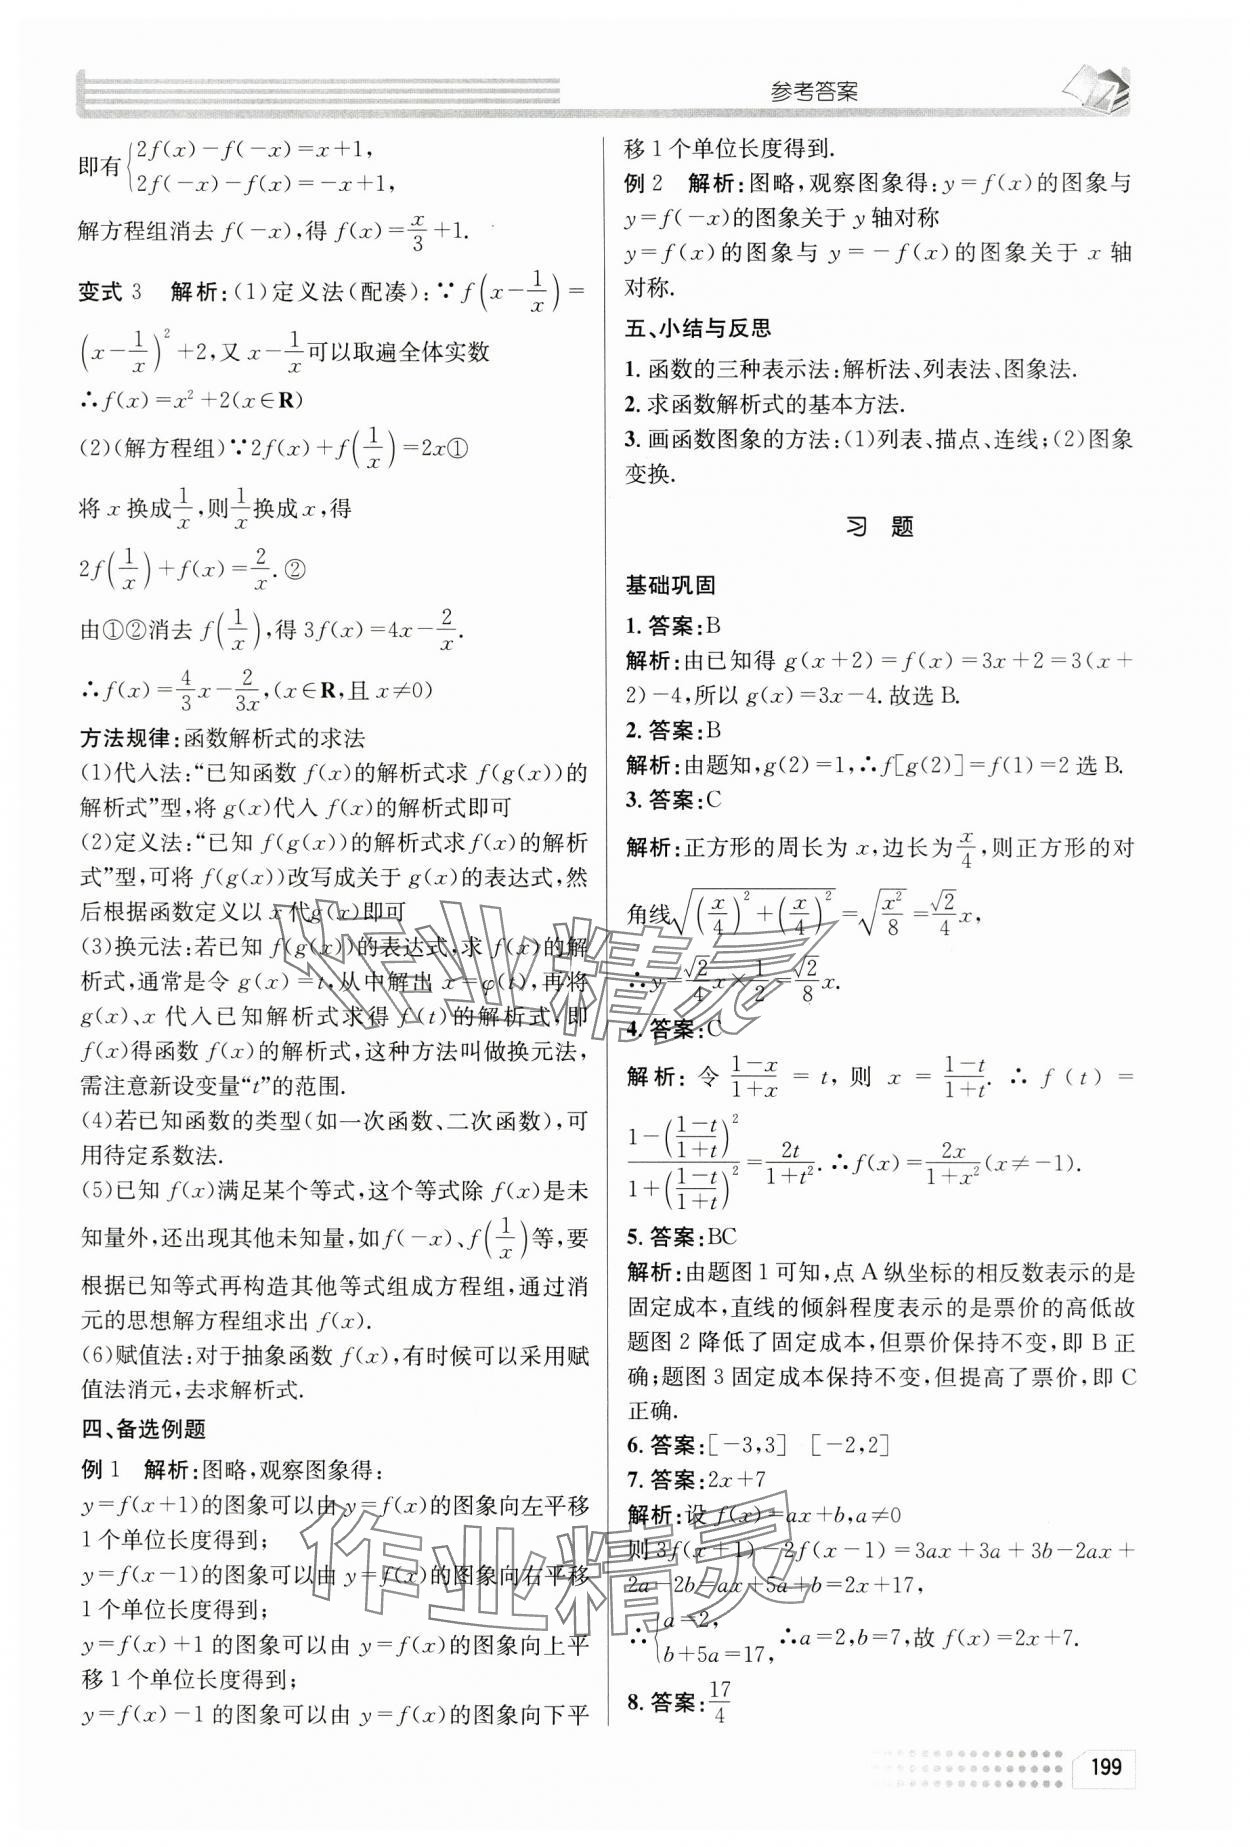 参考答案
即有{2f(x)-f(-x)=x+1,
2f(-x)-f(x)=-x+1,
解方程组消去 f(-x),得 f(x)=x/3+1.
变式 3 解析:(1)定义法(配凑):∵f(x-1/x)=
(x-1/x)²+2,又 x-1/x可以取遍全体实数
∴f(x)=x²+2(x∈R)
(2)(解方程组)∵2f(x)+f(1/x)=2x①
将 x 换成1/x,则1/x换成 x,得
2f(1/x)+f(x)=2/x.②
由①②消去 f(1/x),得 3f(x)=4x-2/x.
∴f(x)=4/3x-2/3x,(x∈R,且 x≠0)
方法规律:函数解析式的求法
(1)代入法:“已知函数 f(x)的解析式求 f(g(x))的
解析式”型,将 g(x)代入 f(x)的解析式即可
(2)定义法:“已知 f(g(x))的解析式求f(x)的解析
式”型,可将 f(g(x))改写成关于 g(x)的表达式,然
后根据函数定义以 x 代g(x)即可
(3)换元法:若已知 f(g(x))的表达式,求 f(x)的解
析式,通常是令 g(x)=t,从中解出 x=φ(t),再将
g(x)、x 代入已知解析式求得 f(t)的解析式,即
f(x)得函数 f(x)的解析式,这种方法叫做换元法,
需注意新设变量“t”的范围.
(4)若已知函数的类型(如一次函数、二次函数),可
用待定系数法.
(5)已知 f(x)满足某个等式,这个等式除 f(x)是未
知量外,还出现其他未知量,如f(-x)、f(1/x)等,要
根据已知等式再构造其他等式组成方程组,通过消
元的思想解方程组求出 f(x).
(6)赋值法:对于抽象函数 f(x),有时候可以采用赋
值法消元,去求解析式.
四、备选例题
例 1 解析:图略,观察图象得:
y=f(x+1)的图象可以由 y=f(x)的图象向左平移
1 个单位长度得到;
y=f(x-1)的图象可以由 y=f(x)的图象向右平移
1 个单位长度得到;
y=f(x)+1 的图象可以由 y=f(x)的图象向上平
移 1 个单位长度得到;
y=f(x)-1 的图象可以由 y=f(x)的图象向下平
移 1 个单位长度得到.
例 2 解析:图略,观察图象得:y=f(x)的图象与
y=f(-x)的图象关于 y 轴对称
y=f(x)的图象与 y=-f(x)的图象关于 x 轴
对称.
五、小结与反思
1. 函数的三种表示法:解析法、列表法、图象法.
2. 求函数解析式的基本方法.
3. 画函数图象的方法:(1)列表、描点、连线;(2)图象
变换.
习 题
基础巩固
1. 答案:B
解析:由已知得 g(x+2)=f(x)=3x+2=3(x+
2)-4,所以 g(x)=3x-4.故选 B.
2. 答案:B
解析:由题知,g(2)=1,∴f[g(2)]=f(1)=2 选 B.
3. 答案:C
解析:正方形的周长为 x,边长为x/4,则正方形的对
角线√((x/4)²+(x/4)²)=√(x²/8)=√2/4x,
∴y=√2/4x×1/2=√2/8x.
4. 答案:C
解析: 令 (1-x)/(1+x) = t, 则 x = (1-t)/(1+t). ∴ f(t) =
(1-((1-t)/(1+t))²)/(1+((1-t)/(1+t))²)=2t/(1+t²).∴f(x)=2x/(1+x²)(x≠-1).
5. 答案:BC
解析:由题图 1 可知,点 A 纵坐标的相反数表示的是
固定成本,直线的倾斜程度表示的是票价的高低故
题图 2 降低了固定成本,但票价保持不变,即 B 正
确;题图 3 固定成本保持不变,但提高了票价,即 C
正确.
6. 答案:[-3,3] [-2,2]
7. 答案:2x+7
解析:设 f(x)=ax+b,a≠0
则 3f(x+1)-2f(x-1)=3ax+3a+3b-2ax+
2a-2b=ax+5a+b=2x+17,
∴{a=2,
b+5a=17, ∴a=2,b=7,故 f(x)=2x+7.
8. 答案:17/4
199
作业精灵
作业精灵